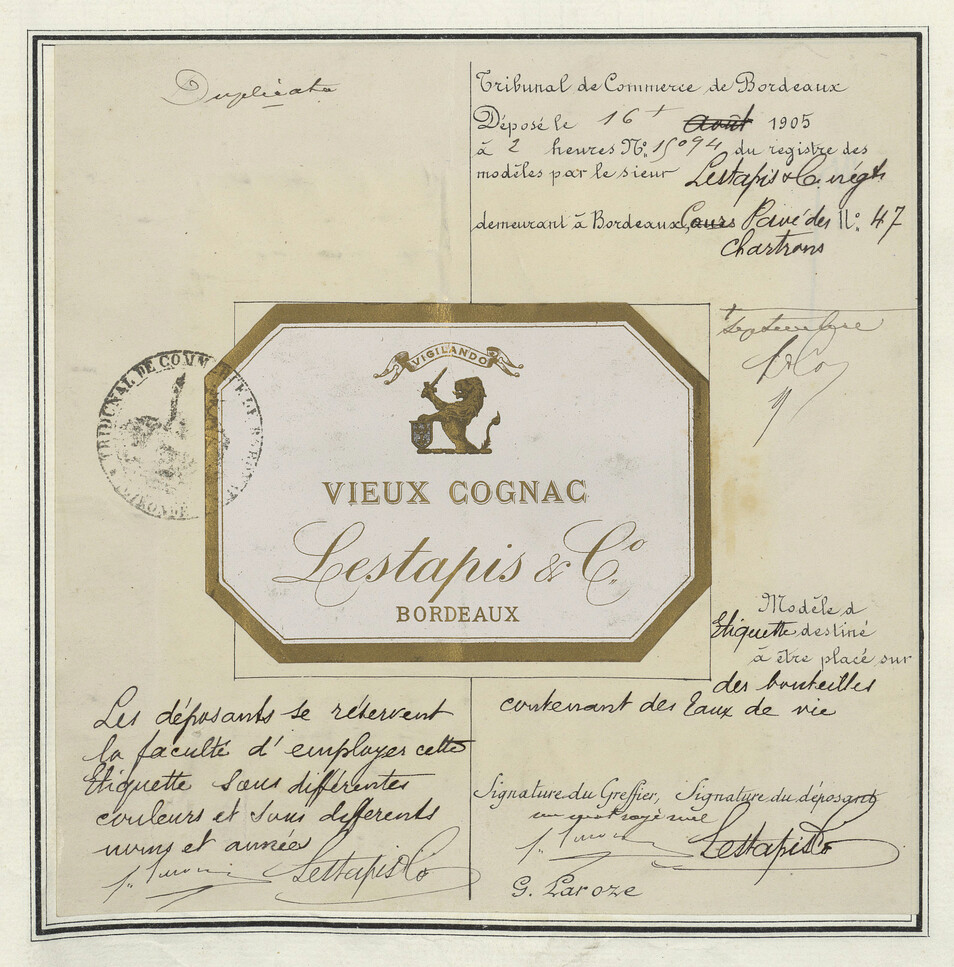 Duplicata
Tribunal de Commerce de Bordeaux
Déposé le 16 ~~août~~ 1905
à 2 heures No. 15094 du registre des
modèles par le sieur Lestapis & C. négts
demeurant à Bordeaux, ~~Cours~~ Pavé des No. 47
Chartrons
septembre
L & Co
TRIBUNAL DE COMMERCE DE BORDEAUX
GIRONDE
VIGILANDO
VIEUX COGNAC
Lestapis & Co.
BORDEAUX
Modèle d
Etiquette destiné
à être placé sur
des bouteilles
contenant des Eaux de vie
Les déposants se réservent
la faculté d'employer cette
Etiquette sous différentes
couleurs et sous differents
noms et année
Lestapis & Co
Signature du Greffier, Signature du déposant,
Lestapis & Co
G. Laroze